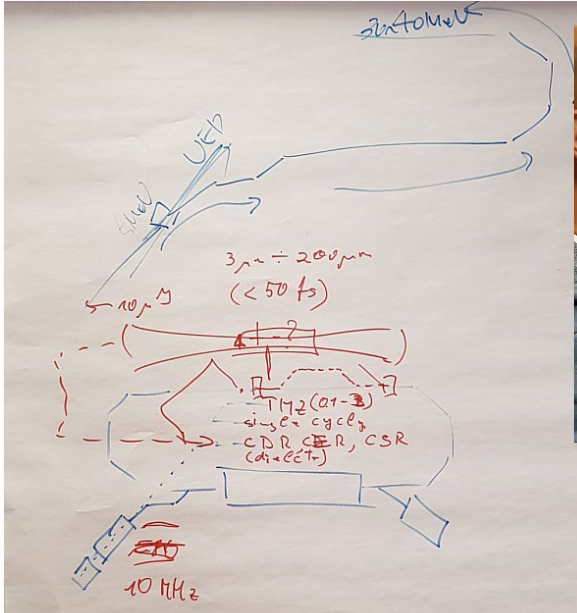 UED
5 MeV
3μm ÷ 200μm
(< 50 fs)
5-10μm
?
THz (0.1-3)
single cycle
CDR CER, CSR
(dielctr)
10 MHz